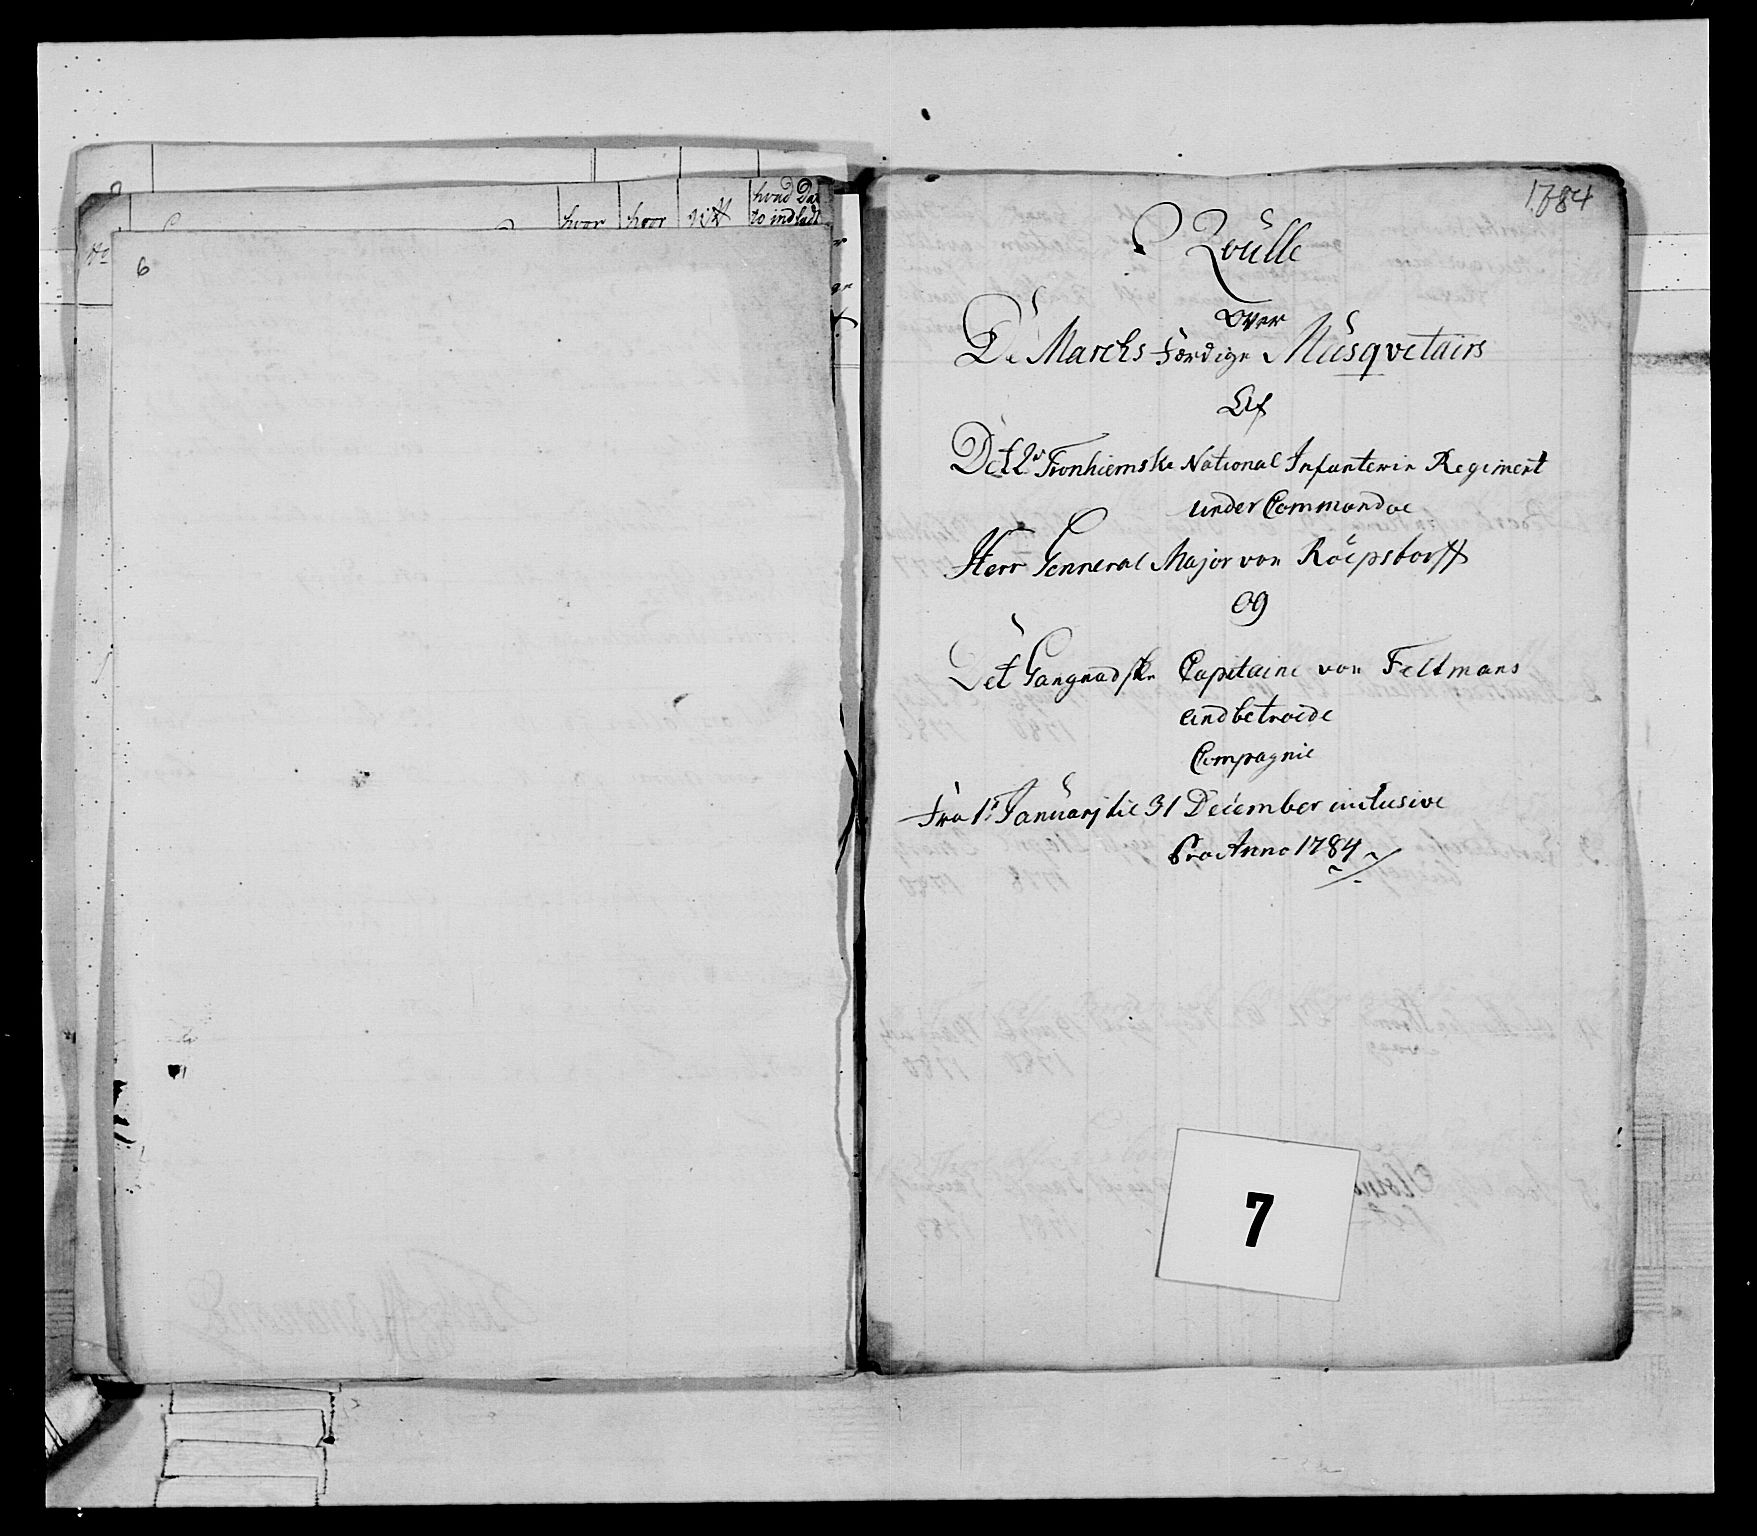 hvor hvor gift hvad Da
to indladt
No
6
1784
Roulle
Over
De Marchs Færdige Musqvetairs
Af
Det 2de Tronhiemske National Infanterie Regiment
under Commandoe
Herr Genneral Major von Röepstorff
og
Det Gangnadske Capitaine von Feltmans
andbetroede
Compagnie
Fra 1t Januarj til 31 December inclusive
Pro Anno 1784
7